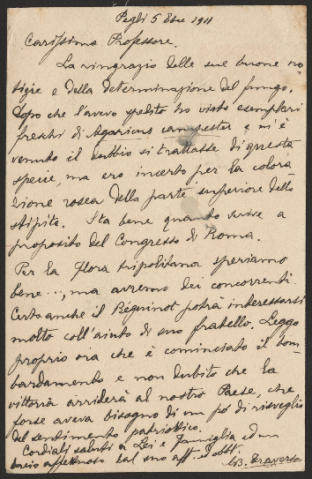 Pegli 5 8bre 1911
Carissimo Professore.
La ringrazio delle sue buone no
tizie e della determinazione del fungo.
Dopo che l'avevo spedito ho visto esemplari
freschi di Agaricus campester e m'è
venuto il dubbio si trattasse di questa
specie, ma ero incerto per la colora
zione rosea della parte superiore dello
stipite. Sta bene quando scrive a
proposito del Congresso di Roma.
Per la flora tripolitana speriamo
bene..., ma avremo dei concorrenti.
Certo anche il Béguinot potrà interessarsi
molto coll'aiuto di suo fratello. Leggo
proprio ora che è cominciato il bom
bardamento e non dubito che la
vittoria arriderà al nostro Paese, che
forse aveva bisogno di un po' di risveglio
del sentimento patriottico.
Cordiali saluti a Lei e Famiglia ed un
bacio affettuoso dal suo aff. ed obbl.
GB. Traverso